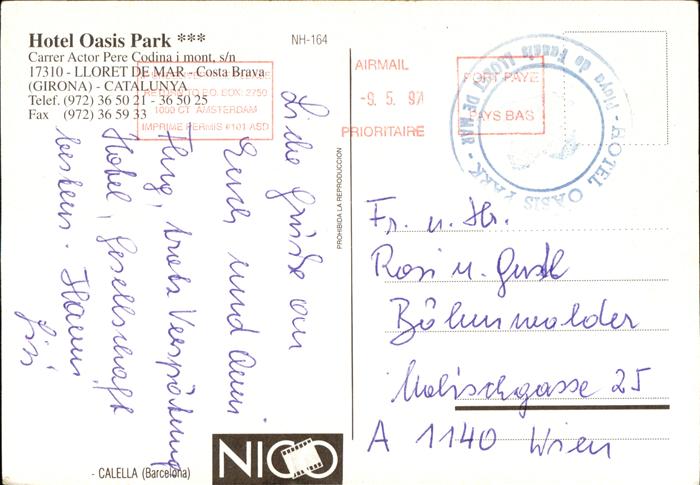 Hotel Oasis Park ***
Carrer Actor Pere Codina i mont, s/n
17310 - LLORET DE MAR - Costa Brava
(GIRONA) - CATALUNYA
Telef. (972) 36 50 21 - 36 50 25
Fax (972) 36 59 33
NH-164
RETOURS TO P.O. BOX: 2750
1000 CT AMSTERDAM
IMPRIME PERMIS #101 ASD
AIRMAIL
-9. 5. 97
PRIORITAIRE
PORT PAYE
PAYS BAS
HOTEL OASIS PARK - LLORET DE MAR - Playa de Fanals
Liebe Grüße an
Euch und
Flug, trotz Verspätung
Hotel, Gesellschaft
bestens. Hanni
Gisi
PROHIBIDA LA REPRODUCCION
Fr. u. Hr.
Rosi u. Gustl
Böhmwalder
Molischgasse 25
A 1140 Wien
- CALELLA (Barcelona)
NICO